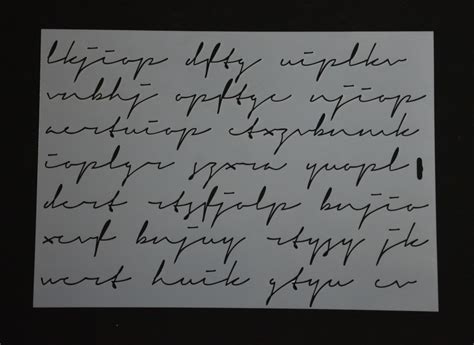 lkjiop dfty uiplkv
vnbhj opftyc njiop
aertuiop ctxzvbnmk
ioplyr szxra yuopl
dert rtsfjolp bnjio
xcvf bnjuy rtysy jk
wert huik gtyu cv